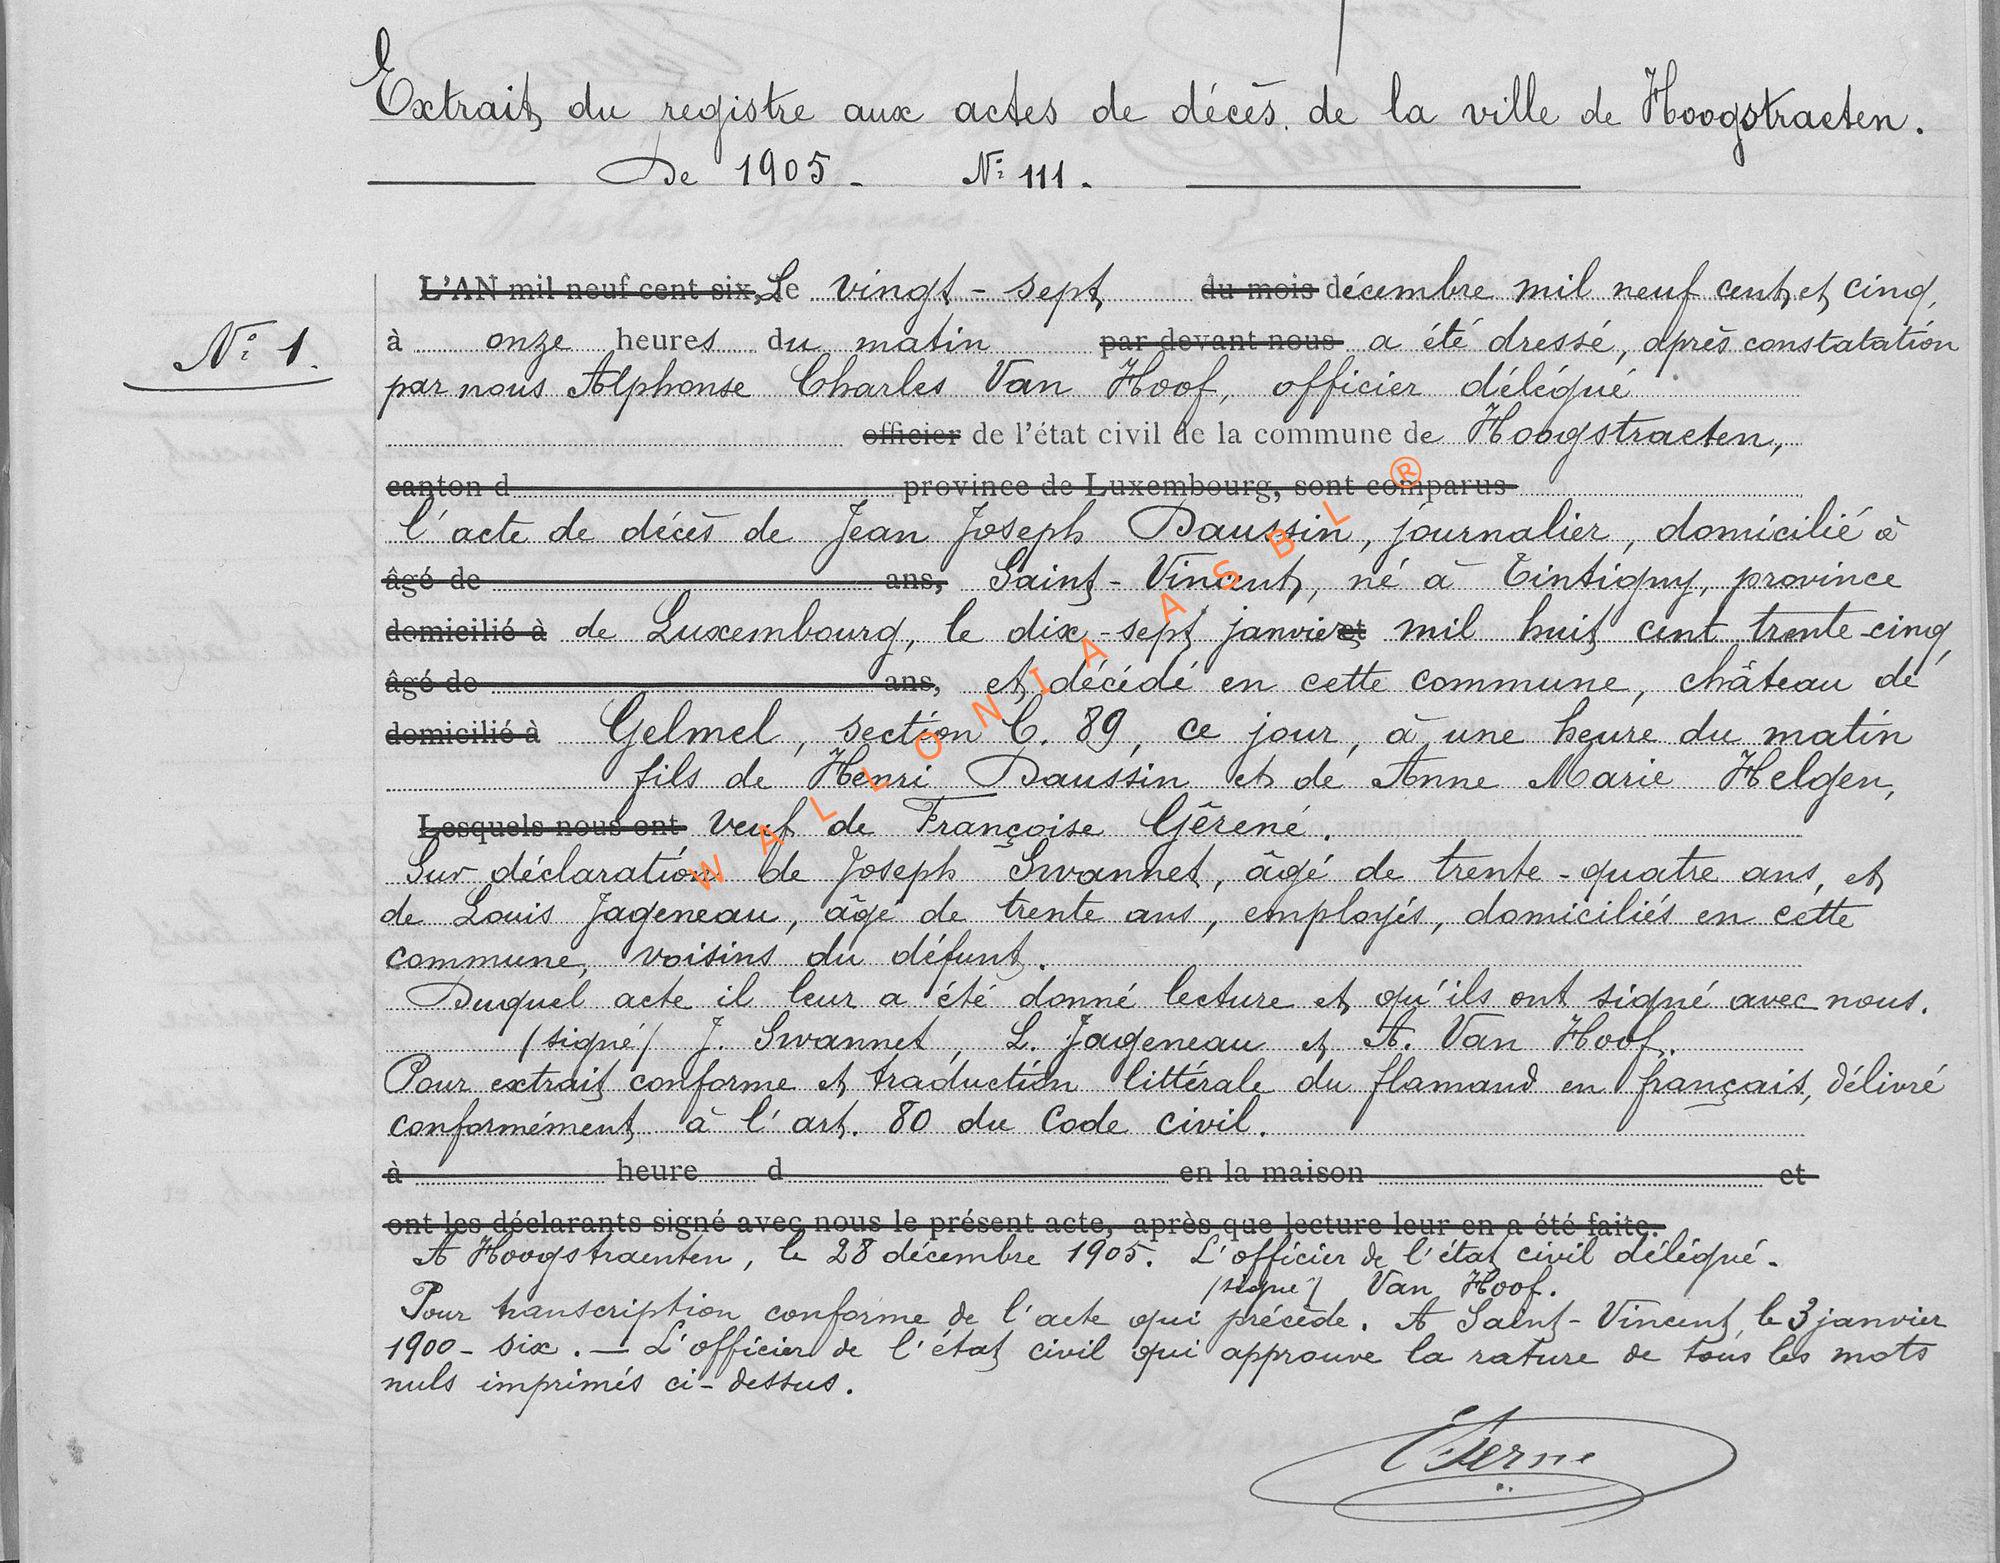 Extrait du registre aux actes de décès de la ville de Hoogstraeten.
De 1905 - N° 111.
L'AN mil neuf cent six, Le vingt-sept du mois décembre mil neuf cent et cinq,
N° 1.
à onze heures du matin par devant nous a été dressé, après constatation
par nous Alphonse Charles Van Hoof, officier délégué
officier de l'état civil de la commune de Hoogstraeten,
canton d province de Luxembourg, sont comparus
l'acte de décès de Jean Joseph Daussin, journalier, domicilié à
âgé de ans, Saint-Vincent, né à Tintigny, province
domicilié à de Luxembourg, le dix-sept janvier et mil huit cent trente-cinq,
âgé de ans, et décédé en cette commune, château de
domicilié à Gelmel, section C. 89, ce jour, à une heure du matin
fils de Henri Daussin et de Anne Marie Helgen,
Lesquels nous ont veuf de Françoise Gêrené.
Sur déclaration de Joseph Swannet, âgé de trente-quatre ans, et
de Louis Jageneau, âgé de trente ans, employés, domiciliés en cette
commune, voisins du défunt.
Duquel acte il leur a été donné lecture et qu'ils ont signé avec nous.
(signé) J. Swannet, L. Jageneau et A. Van Hoof.
Pour extrait conforme et traduction littérale du flamand en français, délivré
conformément à l'art. 80 du Code civil.
à heure d en la maison et
ont les déclarants signé avec nous le présent acte, après que lecture leur en a été faite.
A Hoogstraenten, le 28 décembre 1905. L'officier de l'état civil délégué.
(signé) Van Hoof.
Pour transcription conforme de l'acte qui précède. A Saint-Vincent, le 3 janvier
1900-six. — L'officier de l'état civil qui approuve la rature de tous les mots
nuls imprimés ci-dessus.
WALLONIA ASBL ®